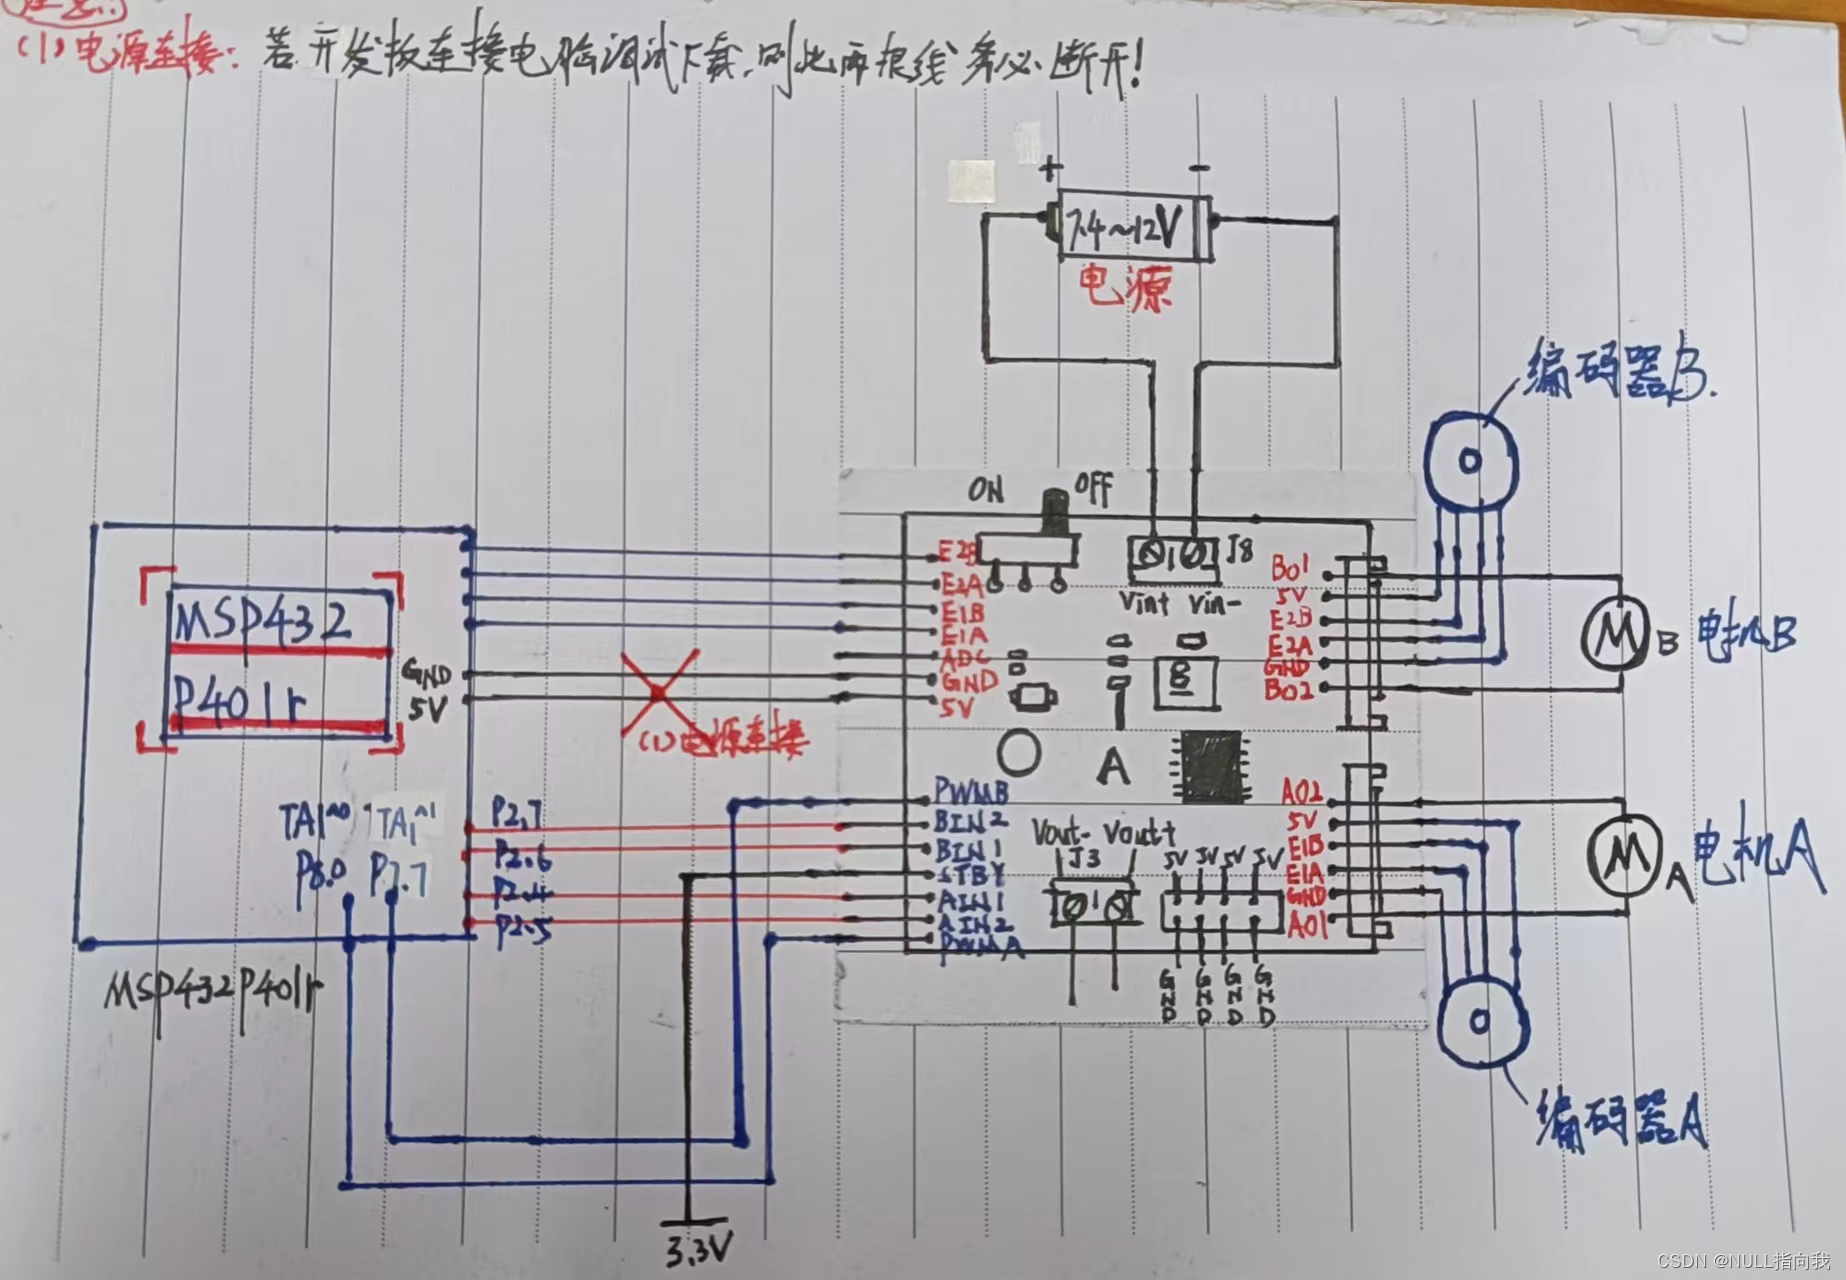 注意:
(1)电源连接: 若开发板连接电脑调试下载,则此两根线务必断开!
+ -
7.4~12V
电源
编码器B.
ON OFF
J8
Vin+ Vin-
E2B
E2A
E1B
E1A
ADC
GND
5V
BO1
5V
E2B
E2A
GND
BO2
M B 电机B
MSP432
P401r
GND
5V
(1)电源连接
8
A
PWMB
BIN2
BIN1
STBY
AIN1
AIN2
PWMA
Vout- Vout+
J3
5V 5V 5V 5V
GND GND GND GND
AO2
5V
E1B
E1A
GND
AO1
M A 电机A
TA1^0 TA1^1
P8.0 P7.7
P2.7
P2.6
P2.4
P2.5
MSP432P401r
编码器A
3.3V
CSDN @NULL指向我